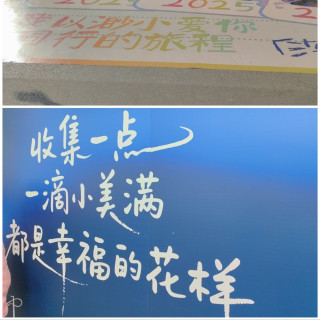 2025
以渺小爱你
同行的旅程
收集一点
一滴小美满
都是幸福的花样